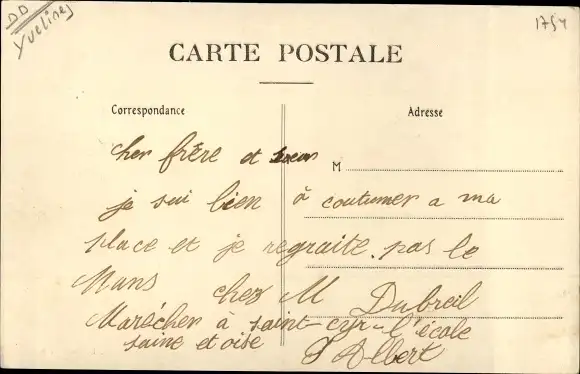 DD
Yvelines
1754
CARTE POSTALE
Correspondance
Adresse
cher frère et soeur
M
je sui bien à coutumer a ma
place et je regraite pas le
Mans chez M Dubreil
Marécher à saint-cyr-l'école
saine et oise
Albert